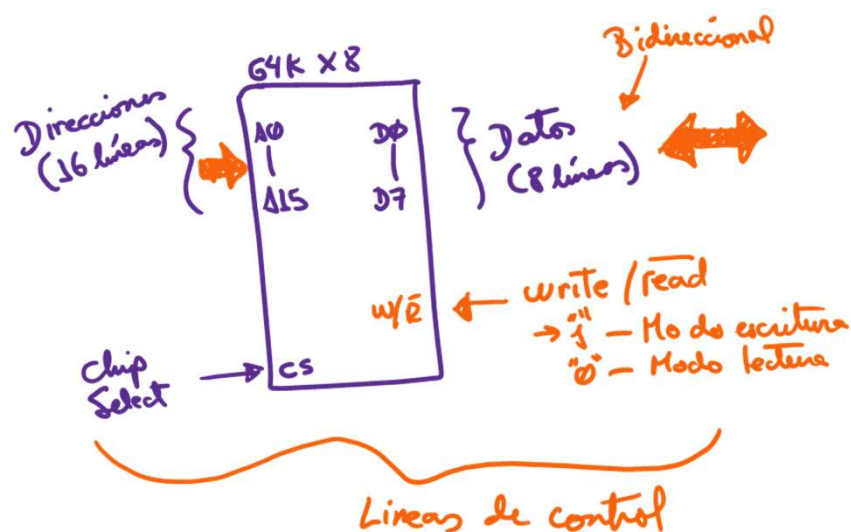 Bidireccional
64K x 8
Direcciones
(16 líneas)
AØ
A15
DØ
D7
Datos
(8 líneas)
W/R̅
write / r̅e̅a̅d̅
→ "1" — Modo escritura
"Ø" — Modo lectura
Chip
Select
CS
Lineas de control